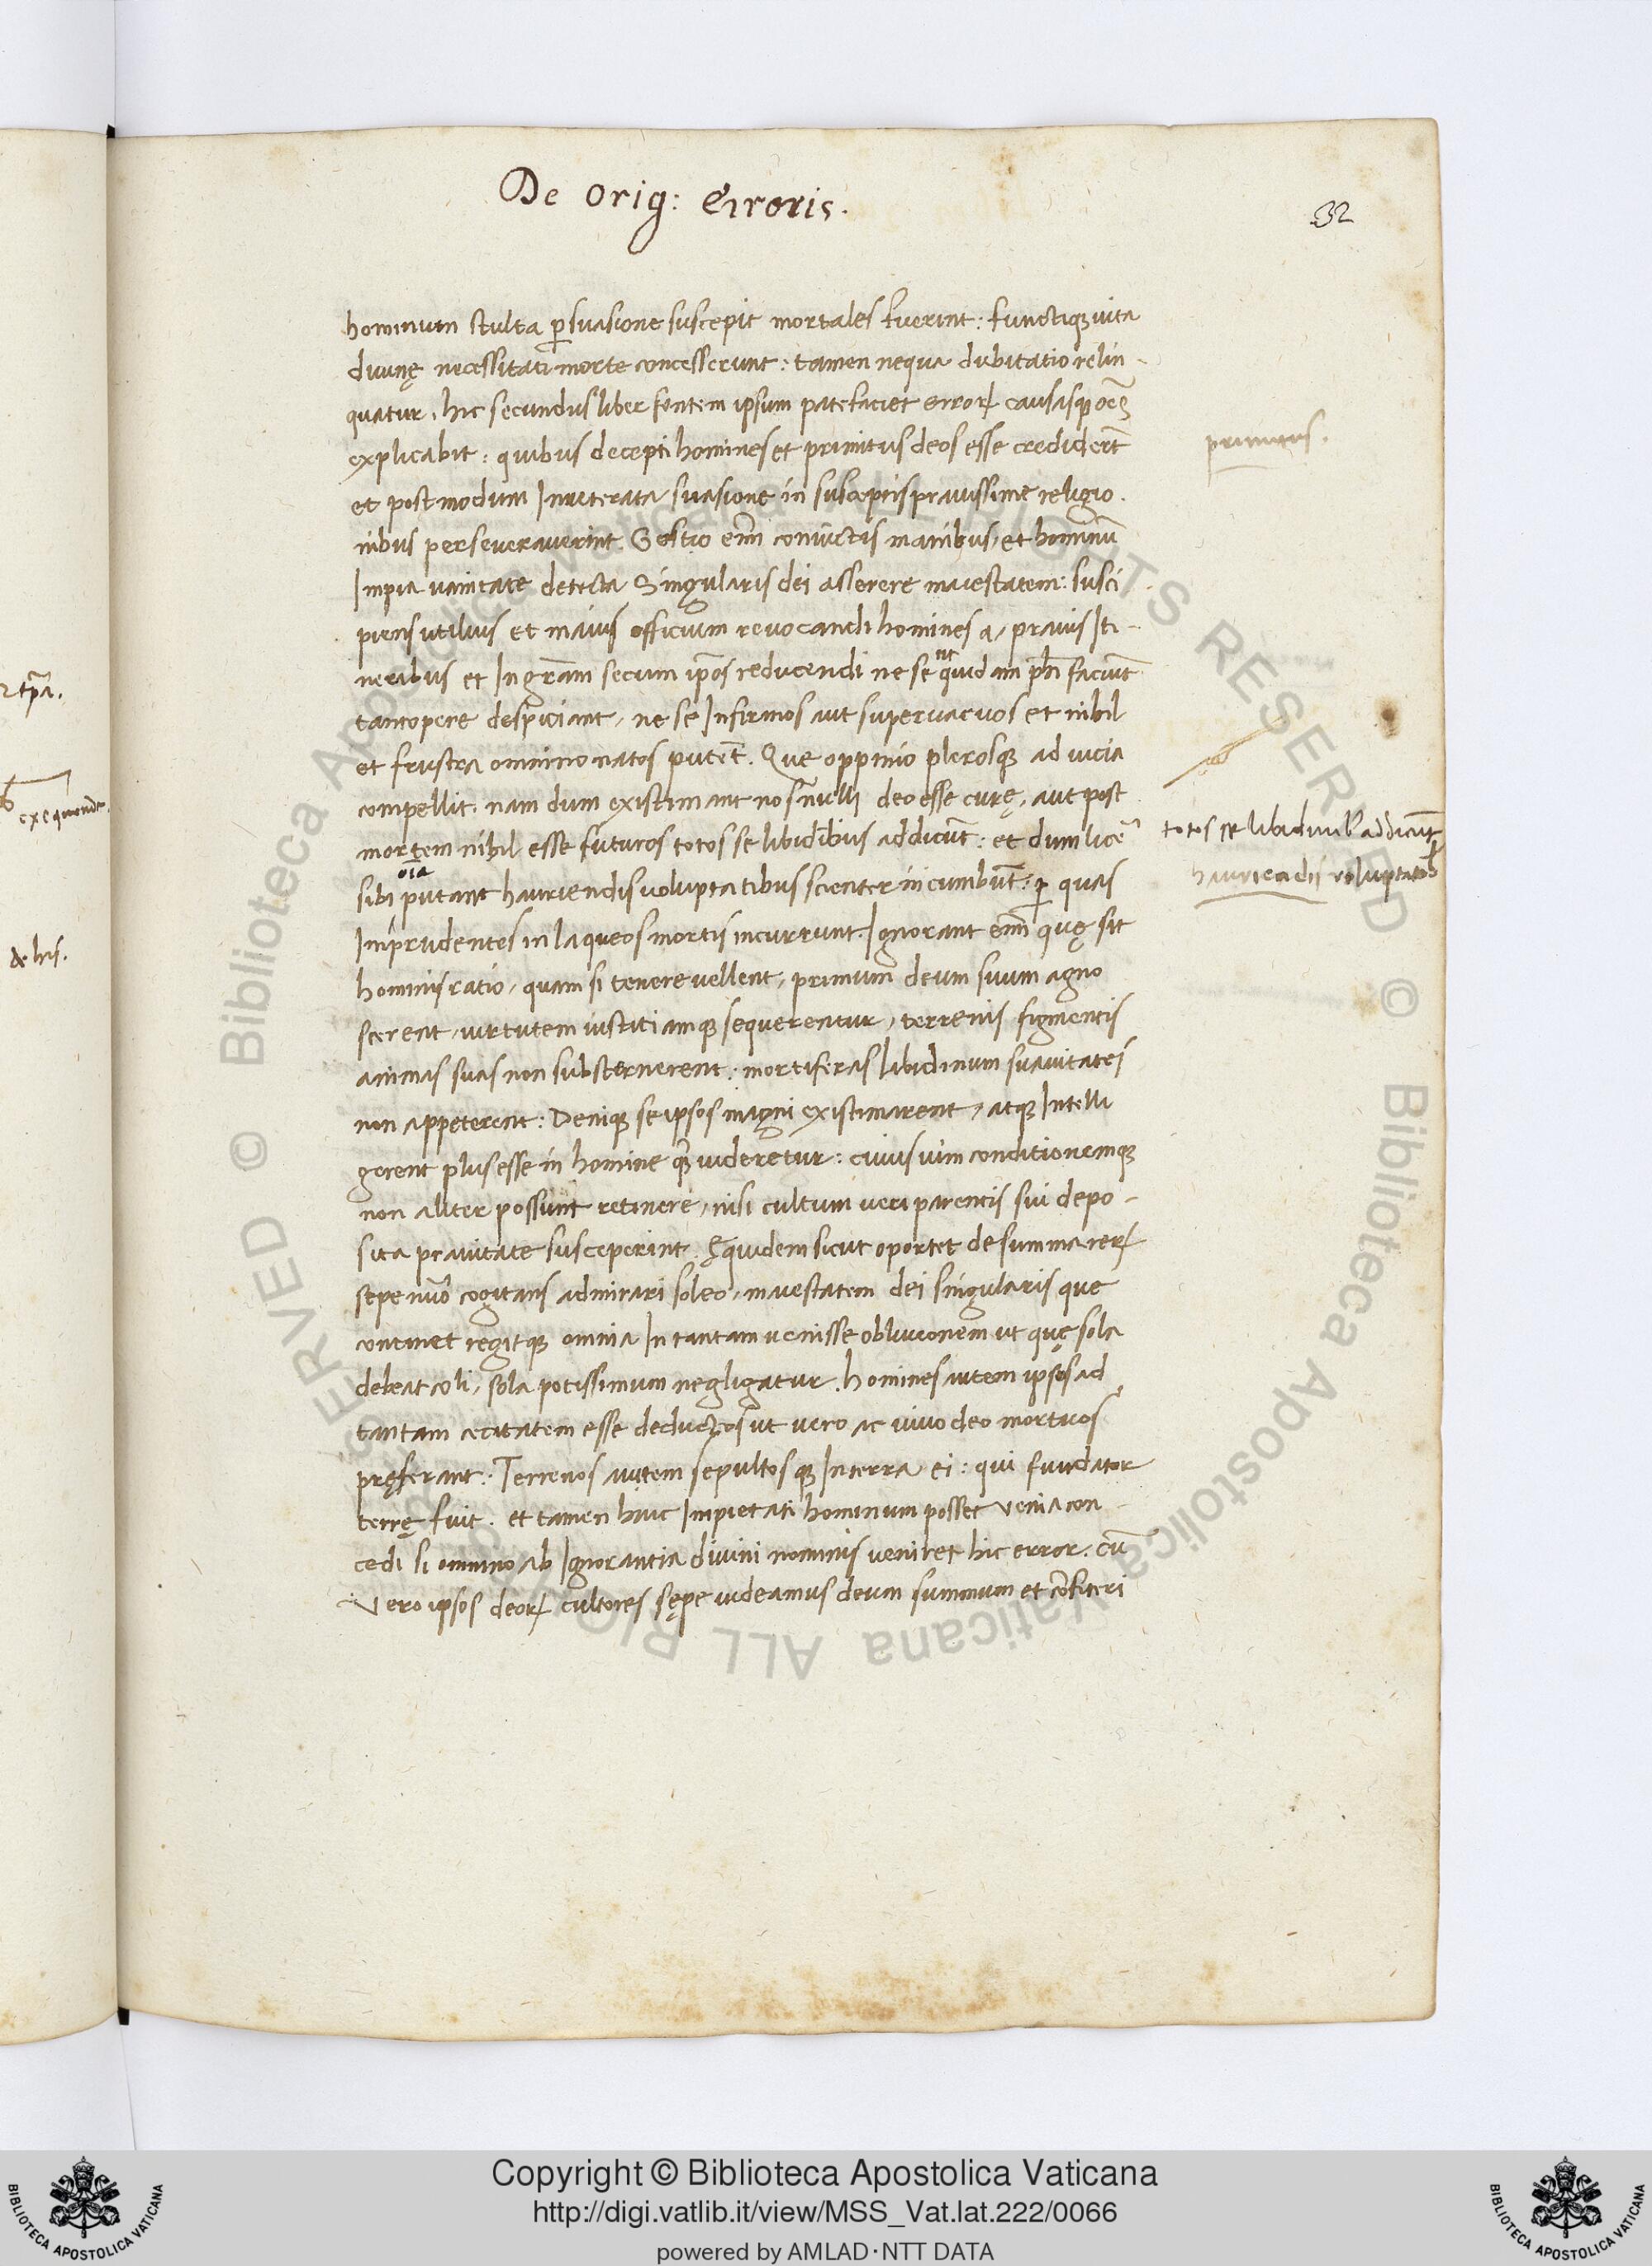 De orig: Erroris.
32
hominum stulta p̱suasione suscepit mortales fuerint: functiqꝫ uita
diuinę necessitati morte concesserunt: tamen nequa dubitatio relin-
quatur, hic secundus liber fontem ipsum patefaciet erroꝝ causasqꝫ oẽs
explicabit: quibus decepti homines et primitus deos esse crediderũt
et post modum Inueterata suasione in susceptis prauissime religio.
nibus perseuerauerint. Gestio enĩ conuictis inanibus, et hominũ
Impia uanitate detecta Singularis dei asserere maiestatem: susci
piens utilius et maius officium reuocandi homines a, prauis Iti-
neribus et In grãm secum ip̃os reducendi ne se ut quidam ph̃i faciũt
tantopere despiciant, ne se Infirmos aut superuacuos et nihil
et frustra omnino natos putẽt. Que oppinio plerosqꝫ ad uicia
compellit. nam dum existimant nos nulli deo esse curę, aut post
mortem nihil esse futuros totos se libidĩbus addicũt: et dum licẽ
sibi oĩa putant hauriendis uoluptatibus scienter incumbũt: ꝑ quas
Imprudentes in laqueos mortis incurrunt. Ignorant enĩ quę sit
hominis ratio, quam si tenere uellent, primum deum suum agno
scerent, uirtutem iustitiamqꝫ sequerentur, terrenis figmentis
animas suas non substernerent: mortiferas libidinum suauitates
non appeterent: Deniqꝫ se ipsos magni existimarent, atqꝫ Intelli
gerent plus esse in homine qᷓ uideretur: cuius uim conditionemqꝫ
non aliter possunt retinere, nisi cultum ueri parentis sui depo-
sita prauitate susceperint. Equidem sicut oportet de summa reꝝ
sepe nũo cogitans admirari soleo, maiestatem dei singularis que
continet regitqꝫ omnia In tantam uenisse obliuionem ut quę sola
debeat coli, sola potissimum negligatur. homines autem ipsos ad
tantam cecitatem esse deductos ut uero ac uiuo deo mortuos
pręferant: Terrenos autem sepultosqꝫ In terra ei: qui fundator
terrę fuit. et tamen huic Impietati hominum posset uenia con-
cedi si omnino ab Ignorantia diuini nominis ueniret hic error. cũ
Vero ipsos deoꝝ cultores sępe uideamus deum summum et cõfiteri
primitus.
totos se libidinib⁹ addicũt
hauriendis uoluptatib⁹
exequende.
de his.
Copyright © Biblioteca Apostolica Vaticana
http://digi.vatlib.it/view/MSS_Vat.lat.222/0066
powered by AMLAD·NTT DATA
BIBLIOTECA APOSTOLICA VATICANA
BIBLIOTECA APOSTOLICA VATICANA
© Biblioteca Apostolica Vaticana ALL RIGHTS RESERVED
© Biblioteca Apostolica Vaticana ALL RIGHTS RESERVED